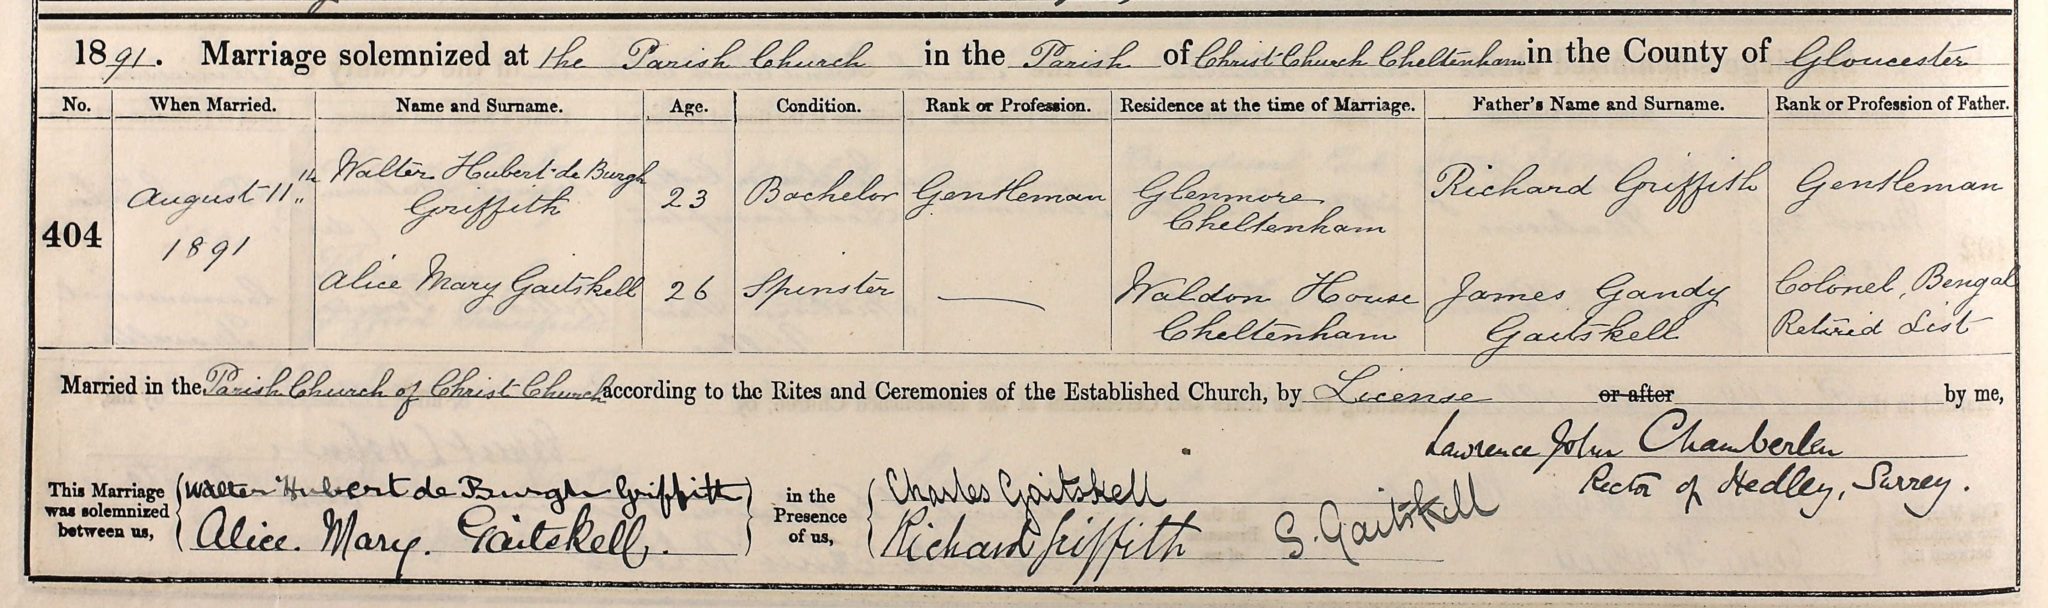 1891. Marriage solemnized at the Parish Church in the Parish of Christ Church Cheltenham in the County of Gloucester
No. When Married. Name and Surname. Age. Condition. Rank or Profession. Residence at the time of Marriage. Father's Name and Surname. Rank or Profession of Father.
404
August 11th
1891
Walter Hubert de Burgh
Griffith
23
Bachelor
Gentleman
Glenmore
Cheltenham
Richard Griffith
Gentleman
Alice Mary Gaitskell
26
Spinster
—
Waldon House
Cheltenham
James Gandy
Gaitskell
Colonel, Bengal
Retired List
Married in the Parish Church of Christ Church according to the Rites and Ceremonies of the Established Church, by License or after by me,
Lawrence John Chamberlen
Rector of Hedley, Surrey.
This Marriage
was solemnized
between us,
Walter Hubert de Burgh Griffith
Alice. Mary. Gaitskell.
in the
Presence
of us,
Charles Gaitskell
Richard Griffith S. Gaitskell